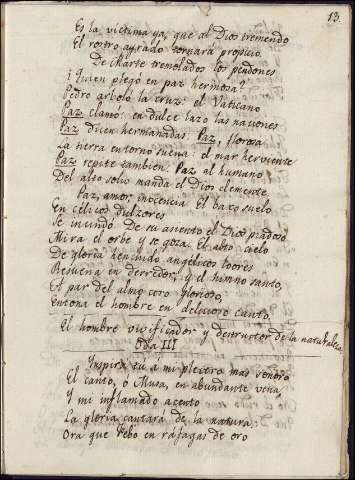 13.
Es la victima ya, que al Dios tremendo
El rostro ayrado tornará propicio.
De Marte tremolados los pendones
¿Quien plegó en paz hermosa?
Pedro arboló la cruz: el Vaticano
Paz clamó: en dulce lazo las naciones
Paz dicen hermanadas. Paz, llorosa
La tierra entorno suena: el mar herviente
Paz repite tambien. Paz al humano
Del alto solio manda el Dios clemente.
Paz, amor, inocencia. El bazo suelo
En célicos dulzores
Se inundó. De su asiento el Dios piadoso
Mira el orbe y se goza. El alto cielo
De gloria henchido angelicos loores
Resuena en derredor; y el himno santo,
Al par del almo coro glorioso,
Entona el hombre en delicioso canto.
El hombre vivificador y destructor de la naturaleza
Oda III
Inspira tú á mi plectro mas sonoro
El canto, ó Musa, en abundante vena,
Y mi inflamado acento
La gloria cantará de la natura;
Ora que Febo en ráfagas de oro